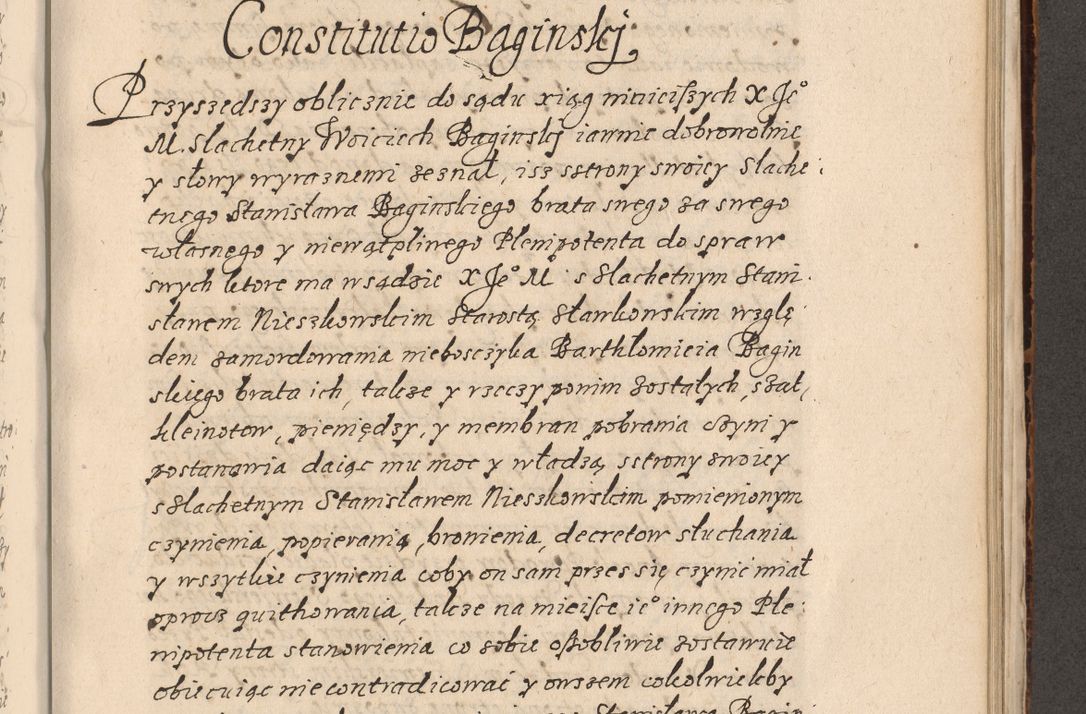 Constitutio Baginskj
Przyszedszy oblicznie do sądu xiąg ninieiſzych X Je°
M. Slachetny Woiciech Baginskj iawnie dobrowolnie
y słowy wyraznemi zeznał, isz sstrony swoiey Slache
tnego Stanisława Baginskiego brata swego za swego
własnego y niewątpliwego Plenipotenta do spraw
swych ktore ma wsądzie X Je° M. s Slachetnym Stani
sławem Nieszkowskim Starostą Sławkowskim wzglę
dem zamordowania nieboszczyka Barthłomieia Bagin
skiego brata ich, takze y rzeczy ponim zostałych, szat,
kleinotow, pieniędzy, y membran pobrania czyni y
postanawia daiąc mu moc y władzą, sstrony swoiey
s Slachetnym Stanisławem Nieszkowskim pomienionym
czynienia, popierania, bronienia, decretow słuchania
y wszytkie czynienia coby on sam przes się czynic miał
oprocz quithowania, takze na mieiſce ie° innego Ple:
nipotenta stanowienia co sobie oſzobliwie zostawuie
obiecuiąc nie contradicować y owszem cokolwiekby
Stanisława Bagin